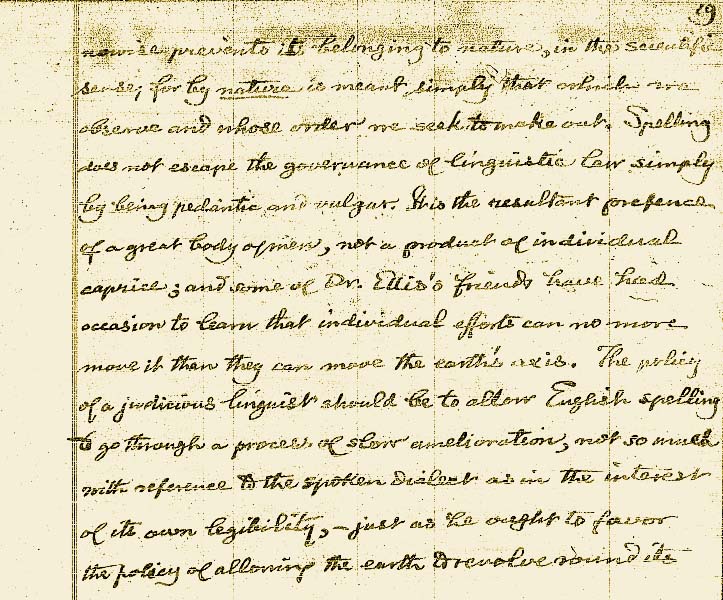 29
nowise prevents its belonging to nature, in the scientific
sense; for by nature is meant simply that which we
observe and whose order we seek to make out. Spelling
does not escape the governance of linguistic law simply
by being pedantic and vulgar. It is the resultant preference
of a great body of men, not a product of individual
caprice; and some of Dr. Ellis's friends have had
occasion to learn that individual efforts can no more
move it than they can move the earth's axis. The policy
of a judicious linguist should be to allow English spelling
to go through a process of slow amelioration, not so much
with reference to the spoken dialect as in the interest
of its own legibility, — just as he ought to favor
the policy of allowing the earth to revolve round its